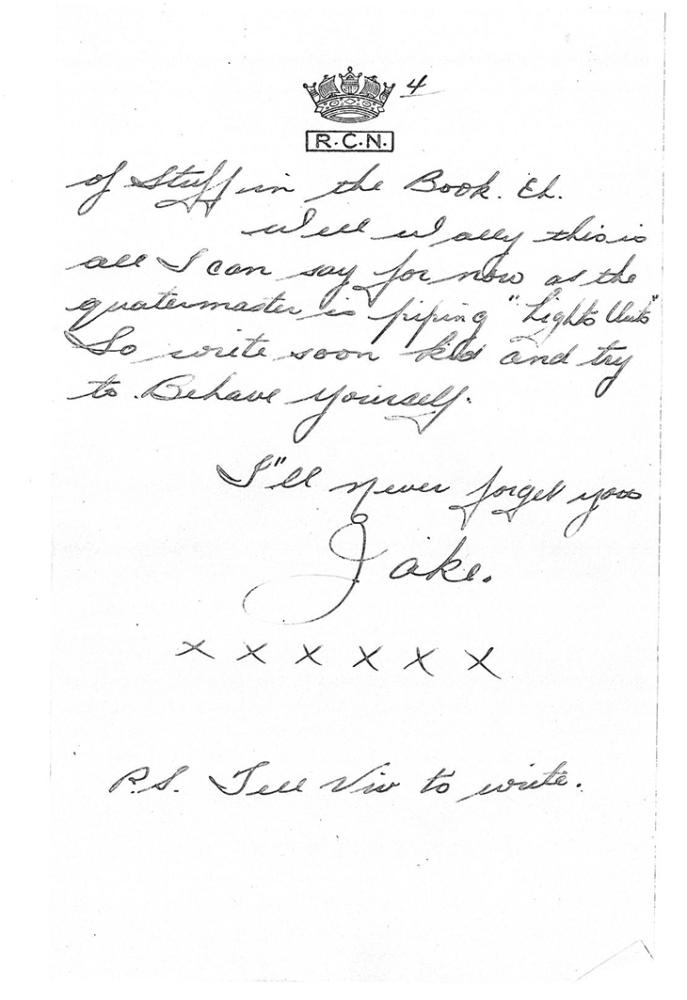 4
R.C.N.
of Stuff in the Book. Eh.
Well Wally this is
all I can say for now as the
quatermaster is piping "Lights Outs"
So write soon kid and try
to. Behave yourself.
I'll never forget you
Jake.
x x x x x x
P.S. Tell Viv to write.